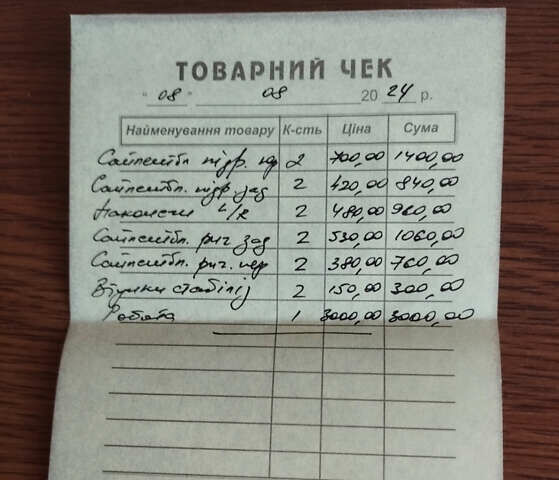 ТОВАРНИЙ ЧЕК
"08" 08 2024 р.
Найменування товару К-сть Ціна Сума
Сайлентбл. підр. пер 2 700,00 1400,00
Сайлентбл. підр. зад 2 420,00 840,00
Наконечн L/R 2 480,00 960,00
Сайлентбл. рич. зад 2 530,00 1060,00
Сайлентбл. рич. пер 2 380,00 760,00
Втулки стабіліз 2 150,00 300,00
Робота 1 3000,00 3000,00